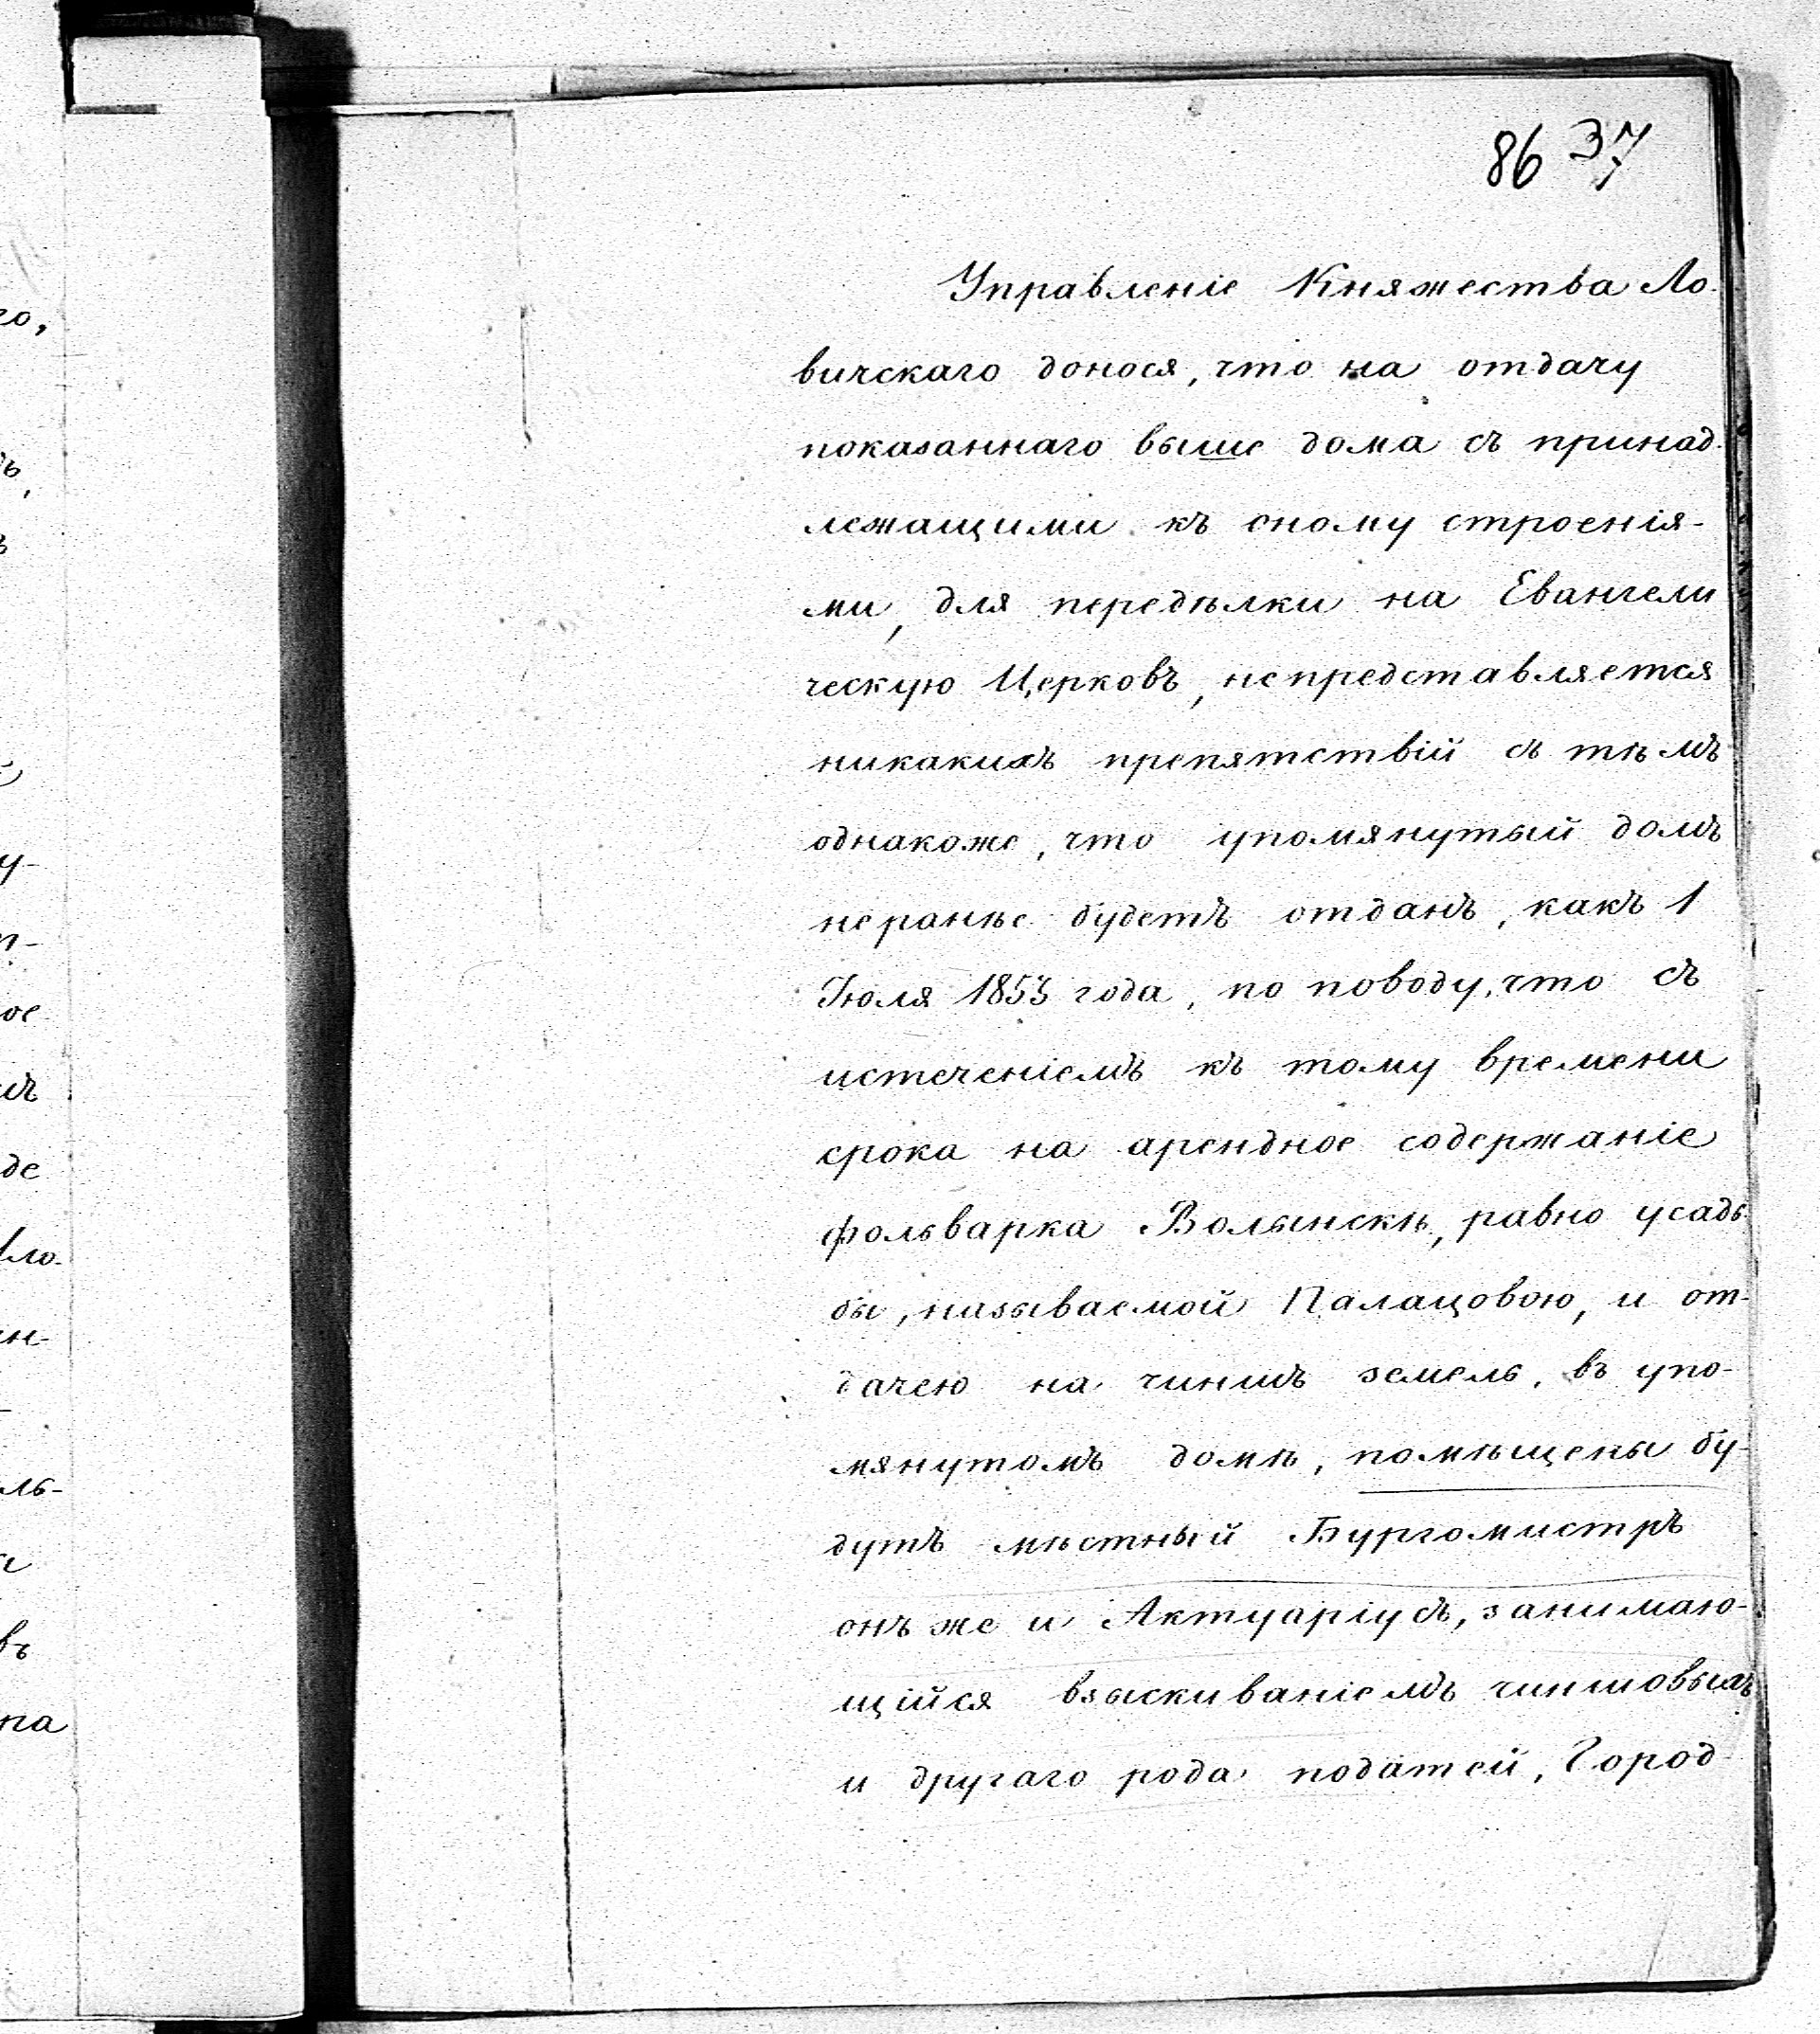 86 37
Управленіе Княжества Ло-
вичскаго донося, что на отдачу
показаннаго выше дома съ принад-
лежащими къ оному строенія-
ми, для передѣлки на Евангели
ческую Церковъ, непредставляется
никакихъ препятствій съ тѣмъ
однакоже, что упомянутый домъ
неранѣе будетъ отданъ, какъ 1
Іюля 1853 года, по поводу, что съ
истеченіемъ къ тому времени
срока на арендное содержаніе
фольварка Волынскѣ, равно усадь-
бы, называемой Палацовою, и от-
дачею на чиншъ земель, въ упо-
мянутомъ домѣ, помѣщены бу-
дутъ мѣстный Бургомистръ
онъ же и Актуаріусъ, занимаю-
щійся взыскиваніемъ чиншовыхъ
и другаго рода податей, Город-